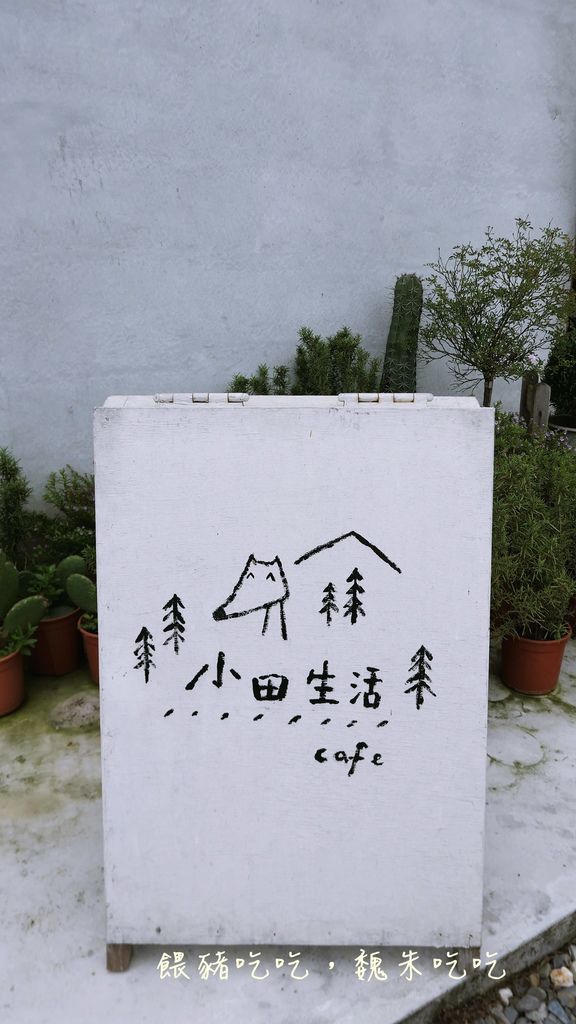 小田生活
cafe
餵豬吃吃，魏朱吃吃